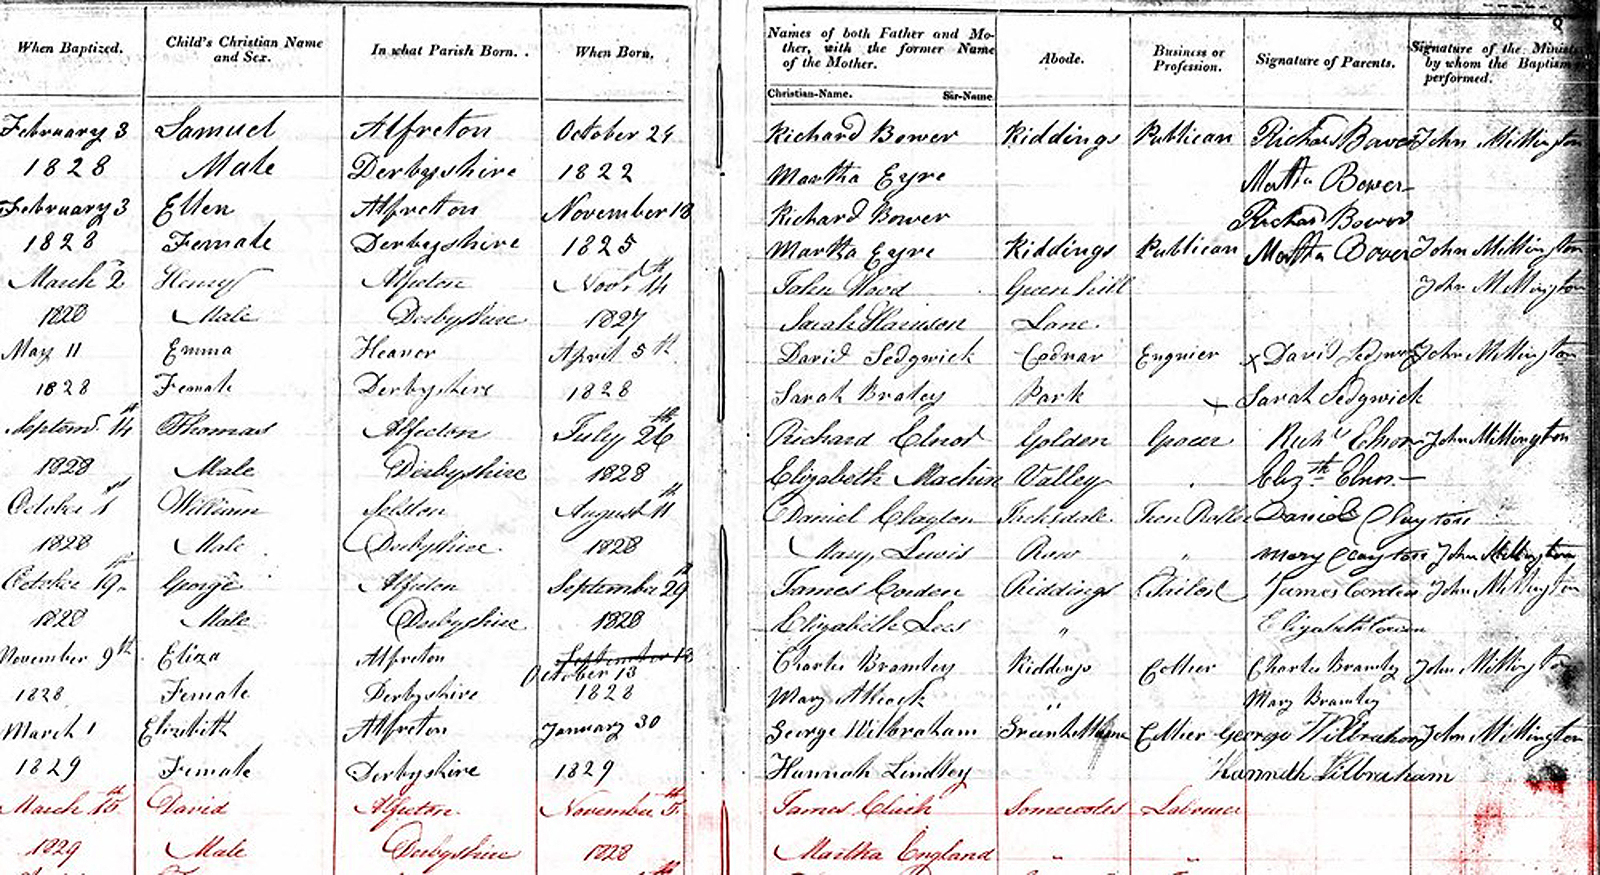 When Baptized. Child's Christian Name and Sex. In what Parish Born. When Born. Names of both Father and Mother, with the former Name of the Mother. Abode. Business or Profession. Signature of Parents. Signature of the Minister by whom the Baptism performed.
Christian-Name. Sir-Name
February 3 Samuel Alfreton October 24 Richard Bower Riddings Publican Richard Bower John Millington
1828 Male Derbyshire 1822 Martha Eyre Martha Bower
February 3 Ellen Alfreton November 18 Richard Bower Richard Bower
1828 Female Derbyshire 1825 Martha Eyre Riddings Publican Martha Bower John Millington
March 2 Henry Alfreton Novr. 14th John Wood Green hill John Millington
1828 Male Derbyshire 1827 Sarah Harrison Lane
May 11 Emma Heanor April 5th David Sedgwick Codnar Enginer x David Sedgwick John Millington
1828 Female Derbyshire 1828 Sarah Bratey Park x Sarah Sedgwick
Septemr. 14th Thomas Alfreton July 26th Richard Elnor Golden Grocer Richd Elnor John Millington
1828 Male Derbyshire 1828 Elizabeth Machin Valley Elizth Elnor
October 1st William Selston August 11th Daniel Clayton Row Iron Roller Daniel Clayton
1828 Male Derbyshire 1828 Mary Lewis Mary Clayton John Millington
October 19th George Alfreton September 29th James Corden Riddings Tailor James Corden John Millington
1828 Male Derbyshire 1828 Elizabeth Lees " Elizabeth Corden
November 9th Eliza Alfreton October 13 Charles Bramley Riddings Collier Charles Bramley John Millington
1828 Female Derbyshire 1828 Mary Allcock " Mary Bramley
March 1 Elizabeth Alfreton January 30 George Wilbraham Collier George Wilbraham John Millington
1829 Female Derbyshire 1829 Hannah Lindley Hannah Wilbraham
March 15th David Alfreton November 5th James Somercotes Labourer
1829 Male Derbyshire 1828 Martha England " "